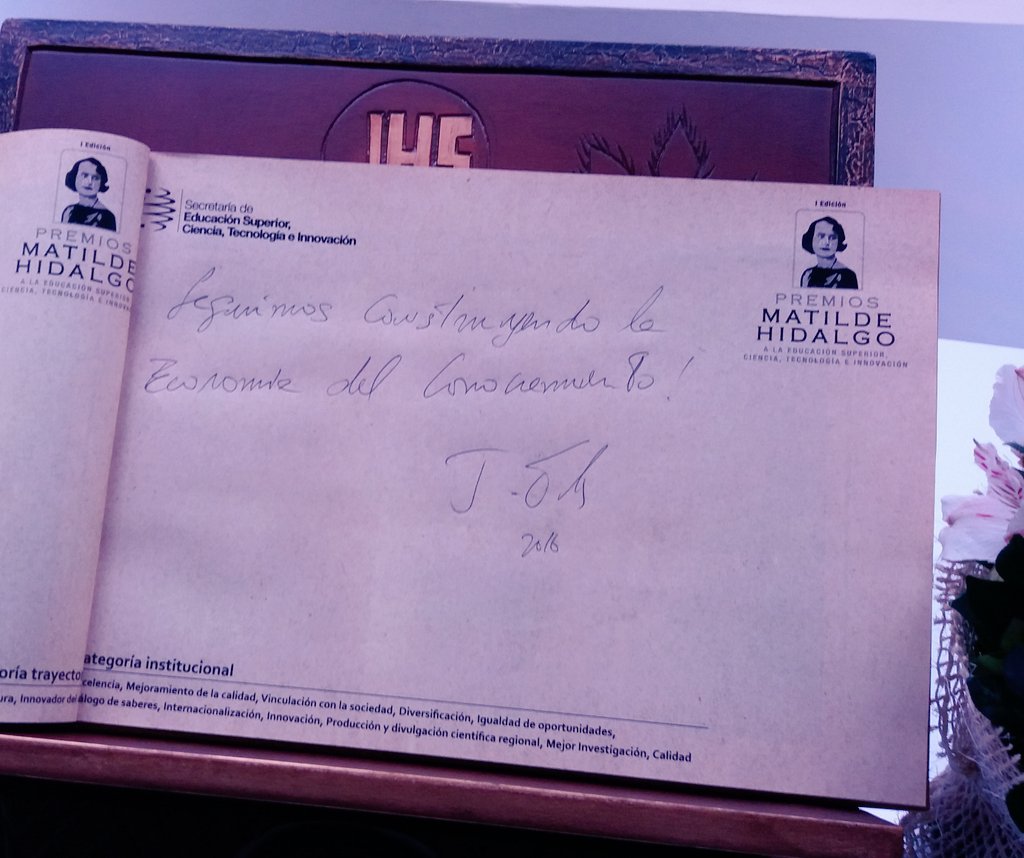 IHS
I Edición
PREMIOS
MATILDE
HIDALGO
A LA EDUCACIÓN SUPERIOR
CIENCIA, TECNOLOGÍA E INNOV
Secretaría de
Educación Superior,
Ciencia, Tecnología e Innovación
I Edición
PREMIOS
MATILDE
HIDALGO
A LA EDUCACIÓN SUPERIOR,
CIENCIA, TECNOLOGÍA E INNOVACIÓN
Seguimos construyendo la
Economía del Conocimiento!
2016
oría trayecto
ura, Innovador de
ategoría institucional
celencia, Mejoramiento de la calidad, Vinculación con la sociedad, Diversificación, Igualdad de oportunidades,
álogo de saberes, Internacionalización, Innovación, Producción y divulgación científica regional, Mejor Investigación, Calidad